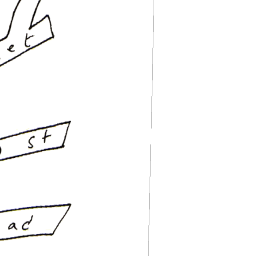 et
st
ad